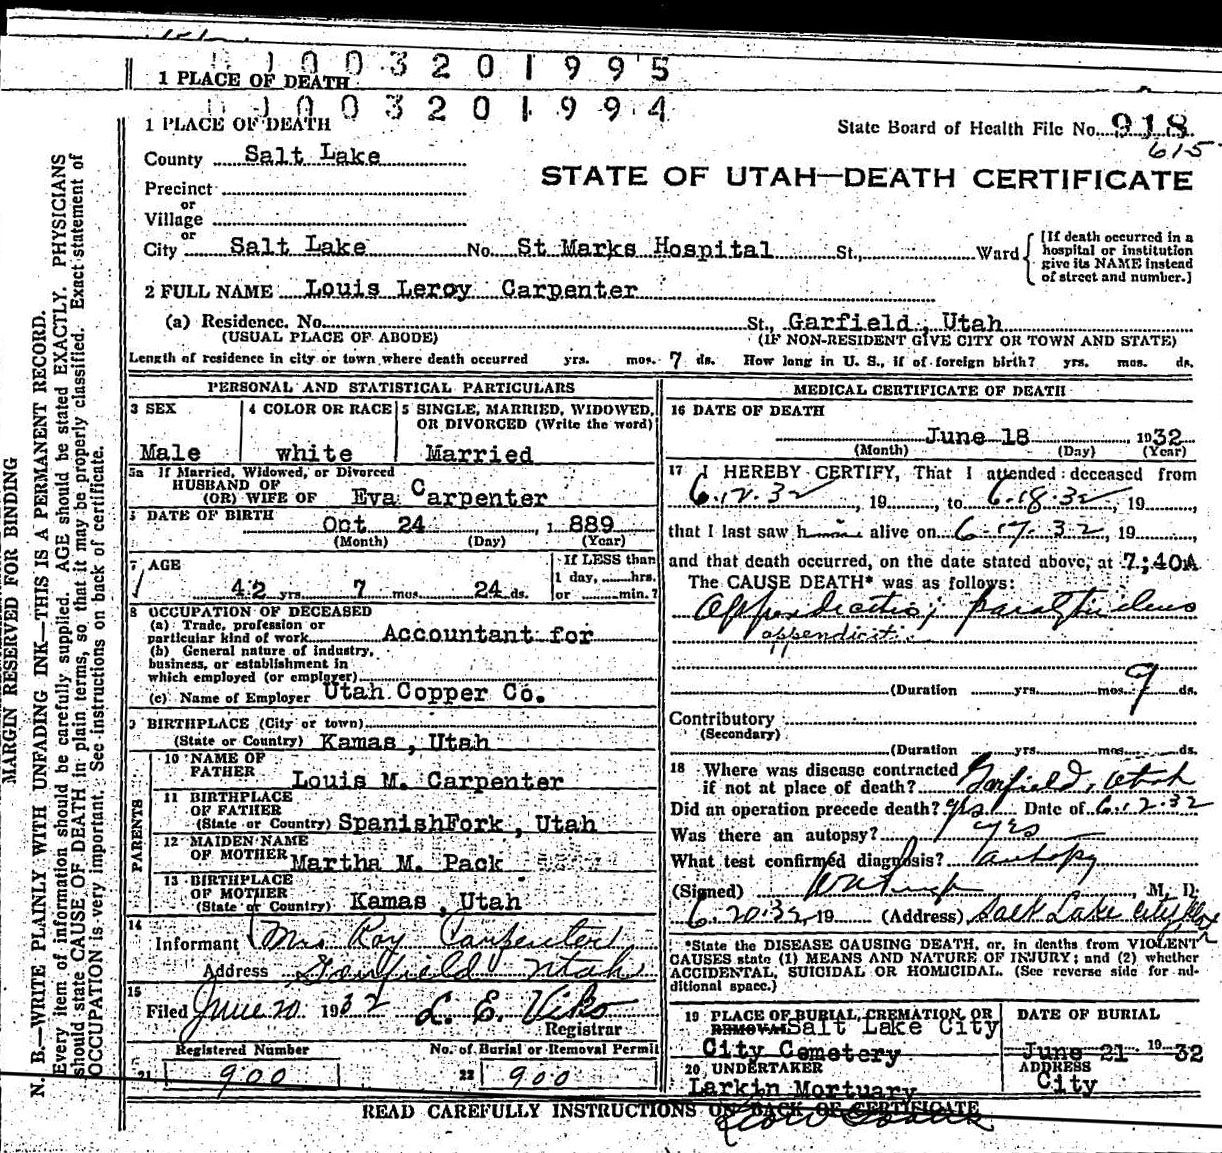 0 1 0 0 3 2 0 1 9 9 5
1 PLACE OF DEATH
0 1 0 0 3 2 0 1 9 9 4
1 PLACE OF DEATH
State Board of Health File No. 918
615
County Salt Lake
STATE OF UTAH—DEATH CERTIFICATE
Precinct
or
Village
or
City Salt Lake No. St Marks Hospital St., Ward
[If death occurred in a hospital or institution give its NAME instead of street and number.]
2 FULL NAME Louis Leroy Carpenter
(a) Residence. No. St., Garfield, Utah
(USUAL PLACE OF ABODE) (IF NON-RESIDENT GIVE CITY OR TOWN AND STATE)
Length of residence in city or town where death occurred yrs. mos. 7 ds. How long in U. S., if of foreign birth? yrs. mos. ds.
PERSONAL AND STATISTICAL PARTICULARS
3 SEX
Male
4 COLOR OR RACE
white
5 SINGLE, MARRIED, WIDOWED, OR DIVORCED (Write the word)
Married
5a If Married, Widowed, or Divorced
HUSBAND OF
(OR) WIFE OF Eva Carpenter
DATE OF BIRTH
Oct 24, 1889
(Month) (Day) (Year)
7 AGE
42 yrs 7 mos. 24 ds.
If LESS than
1 day, hrs.
or min.?
8 OCCUPATION OF DECEASED
(a) Trade, profession or
particular kind of work Accountant for
(b) General nature of industry,
business, or establishment in
which employed (or employer)
(c) Name of Employer Utah Copper Co.
9 BIRTHPLACE (City or town)
(State or Country) Kamas, Utah
PARENTS
10 NAME OF
FATHER Louis M. Carpenter
11 BIRTHPLACE
OF FATHER
(State or Country) SpanishFork, Utah
12 MAIDEN NAME
OF MOTHER Martha M. Pack
13 BIRTHPLACE
OF MOTHER
(State or Country) Kamas, Utah
14
Informant Mrs Roy Carpenter
Address Garfield Utah
15
Filed June 20 1932 L. E. Viko
Registrar
Registered Number
21 900
No. of Burial or Removal Permit
22 900
MEDICAL CERTIFICATE OF DEATH
16 DATE OF DEATH
June 18, 1932
(Month) (Day) (Year)
17 I HEREBY CERTIFY, That I attended deceased from
6.12.32, 19, to 6.18.32, 19,
that I last saw him alive on 6-17-32, 19,
and that death occurred, on the date stated above, at 7:40A
The CAUSE DEATH* was as follows:
Appendicitis;
appendicitis
(Duration yrs. mos. 9 ds.
Contributory
(Secondary)
(Duration yrs. mos. ds.
18 Where was disease contracted
if not at place of death? Garfield, Utah
Did an operation precede death? yes Date of 6.12.32
Was there an autopsy? yes
What test confirmed diagnosis? autopsy
(Signed) M. D.
6.20.32, 19 (Address) Salt Lake City
*State the DISEASE CAUSING DEATH, or, in deaths from VIOLENT
CAUSES state (1) MEANS AND NATURE OF INJURY; and (2) whether
ACCIDENTAL, SUICIDAL OR HOMICIDAL. (See reverse side for additional space.)
19 PLACE OF BURIAL, CREMATION, OR
REMOVAL Salt Lake City
City Cemetery
DATE OF BURIAL
June 21 1932
20 UNDERTAKER
Larkin Mortuary
ADDRESS
City
READ CAREFULLY INSTRUCTIONS ON BACK OF CERTIFICATE
MARGIN RESERVED FOR BINDING
N. B.—WRITE PLAINLY WITH UNFADING INK—THIS IS A PERMANENT RECORD.
Every item of information should be carefully supplied. AGE should be stated EXACTLY. PHYSICIANS
should state CAUSE OF DEATH in plain terms, so that it may be properly classified. Exact statement of
OCCUPATION is very important. See instructions on back of certificate.